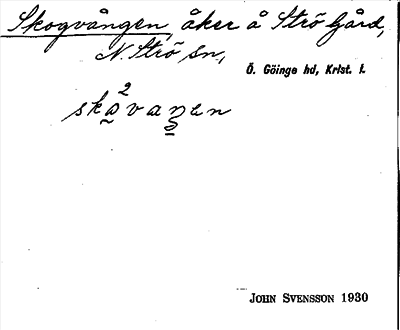 Skogvången, åker å Strö Gård,
N. Strö sn,
Ö. Göinge hd, Krist. l.
JOHN SVENSSON 1930